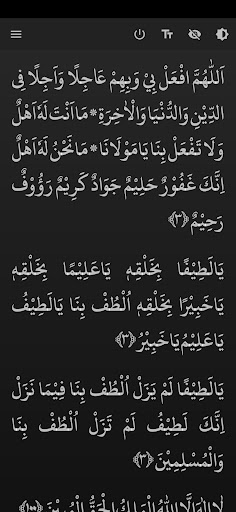 Tт
اَللّٰهُمَّ افْعَلْ بِيْ وَبِهِمْ عَاجِلًا وَاٰجِلًا فِى
الدِّيْنِ وَالدُّنْيَا وَالْاٰخِرَةِ * مَا اَنْتَ لَهٗ اَهْلٌ
وَلَا تَفْعَلْ بِنَا يَا مَوْلَانَا * مَا نَحْنُ لَهٗ اَهْلٌ
اِنَّكَ غَفُوْرٌ حَلِيْمٌ جَوَادٌ كَرِيْمٌ رَؤُوْفٌ
رَحِيْمٌ ﴿٣﴾
يَالَطِيْفًا بِخَلْقِهٖ يَاعَلِيْمًا بِخَلْقِهٖ
يَاخَبِيْرًا بِخَلْقِهٖ اُلْطُفْ بِنَا يَالَطِيْفُ
يَاعَلِيْمُ يَاخَبِيْرُ ﴿٣﴾
يَالَطِيْفًا لَمْ يَزَلْ اُلْطُفْ بِنَا فِيْمَا نَزَلْ
اِنَّكَ لَطِيْفٌ لَمْ تَزَلْ اُلْطُفْ بِنَا
وَالْمُسْلِمِيْنَ ﴿٣﴾
لَا اِلٰهَ اِلَّا اللهُ الْمَلِكُ الْحَقُّ الْمُبِيْنُ ﴿١٠٠﴾